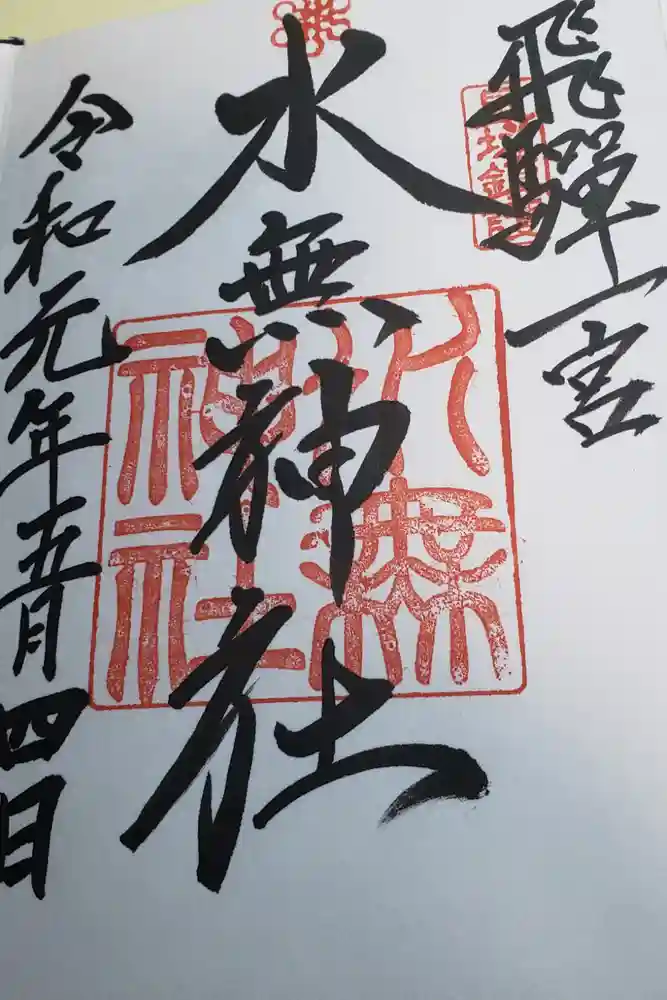 飛驒一宮
水無神社
令和元年五月四日
水無
神社